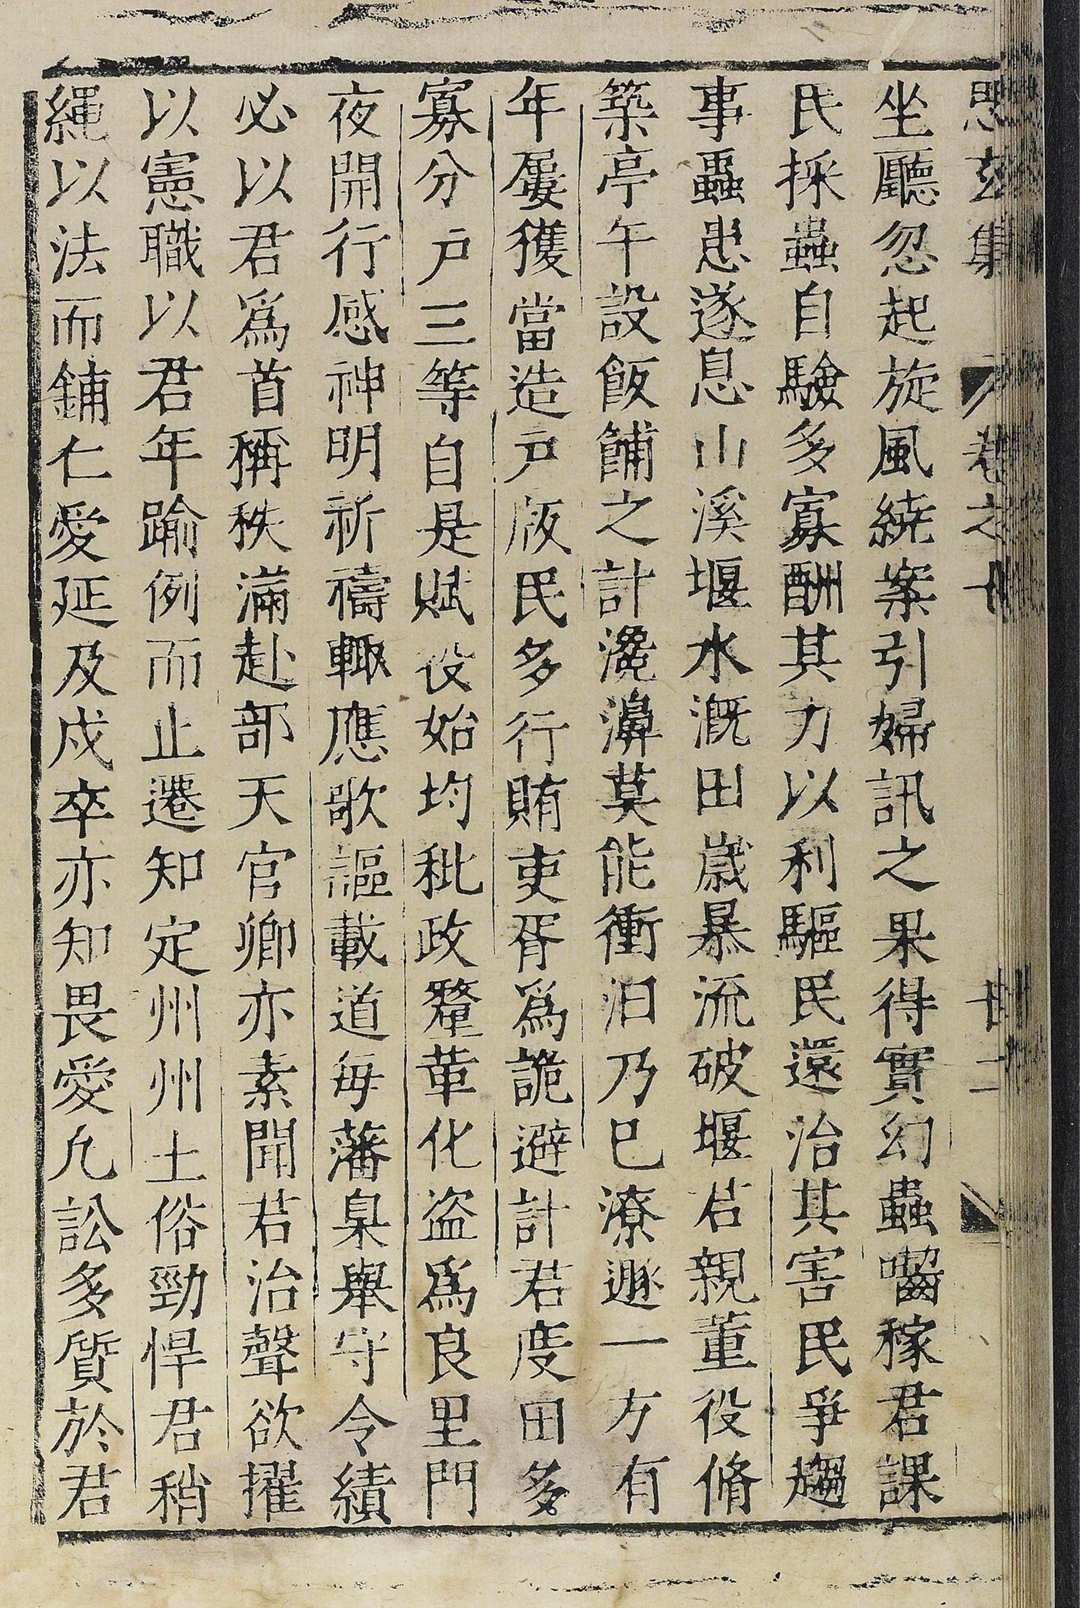 思玄集 卷之十 廿二
坐廳忽起旋風繞案引婦訊之果得實幻蟲囓稼君課
民採蟲自驗多寡酬其力以利驅民還治其害民爭趨
事蟲患遂息山溪堰水溉田歲暴流破堰君親董役脩
築亭午設飯餔之計瀺灂莫能衝汩乃已潦遯一方有
年屢獲當造戶版民多行賄吏胥為詭避計君度田多
寡分戶三等自是賦役始均秕政釐革化盗為良里門
夜開行感神明祈禱輙應歌謳載道每藩臬舉守令績
必以君為首稱秩滿赴部天官卿亦素聞君治聲欲擢
以憲職以君年踰例而止遷知定州州土俗勁悍君稍
繩以法而鋪仁愛延及戍卒亦知畏愛凢訟多質於君